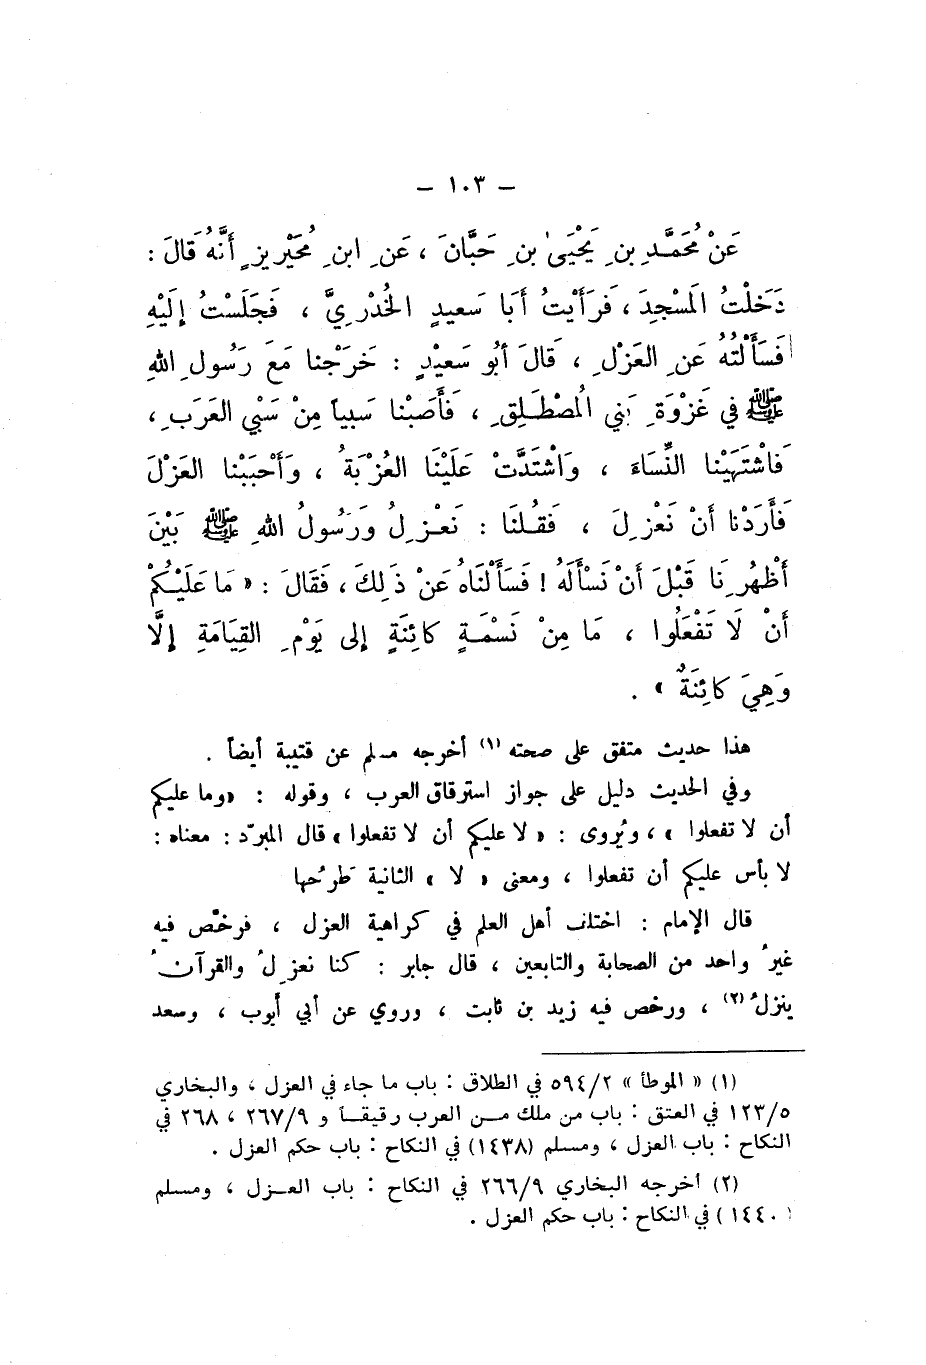 – ١٠٣ –
عَنْ مُحَمَّدِ بنِ يَحْيَىٰ بنِ حَبَّانَ ، عَنِ ابنِ مُحَيْرِيزٍ أَنَّهُ قَالَ :
دَخَلْتُ المَسْجِدَ ، فَرَأَيْتُ أَبَا سَعيدٍ الخُدْرِيَّ ، فَجَلَسْتُ إِلَيْهِ
فَسَأَلْتُهُ عَنِ العَزْلِ ، قَالَ أَبُو سَعيْدٍ : خَرَجْنا مَعَ رَسُولِ اللهِ
ﷺ في غَزْوَةِ بَني المُصْطَلِقِ ، فَأَصَبْنا سَبياً مِنْ سَبْيِ العَرَبِ ،
فَاشْتَهَيْنا النِّسَاءَ ، وَاشْتَدَّتْ عَلَيْنَا العُزْبَةُ ، وَأَحْبَبْنا العَزْلَ
فَأَرَدْنا أَنْ نَعْزِلَ ، فَقُلنَا : نَعْزِلُ وَرَسُولُ اللهِ ﷺ بَيْنَ
أَظْهُرِنَا قَبْلَ أَنْ نَسْأَلَهُ ! فَسَأَلْنَاهُ عَنْ ذَلِكَ ، فَقَالَ : « مَا عَلَيْكُمْ
أَنْ لَا تَفْعَلُوا ، مَا مِنْ نَسْمَةٍ كَائِنَةٍ إِلى يَوْمِ القِيَامَةِ إِلَّا
وَهِيَ كَائِنَةٌ » .
هذا حديث متفق على صحته (١) أخرجه مسلم عن قتيبة أيضاً .
وفي الحديث دليل على جواز استرقاق العرب ، وقوله : «وما عليكم
أن لا تفعلوا » ، ويُروى : « لا عليكم أن لا تفعلوا » قال المبرّد : معناه :
لا بأس عليكم أن تفعلوا ، ومعنى « لا » الثانية طَرْحُها
قال الإمام : اختلف أهل العلم في كراهية العزل ، فرخّص فيه
غيرُ واحد من الصحابة والتابعين ، قال جابر : كنا نعزِلُ والقرآنُ
ينزلُ (٢) ، ورخص فيه زيد بن ثابت ، وروي عن أبي أيوب ، وسعد
(١) « الموطأ » ٥٩٤/٢ في الطلاق : باب ما جاء في العزل ، والبخاري
١٢٣/٥ في العتق : باب من ملك من العرب رقيقاً و ٢٦٧/٩ ، ٢٦٨ في
النكاح : باب العزل ، ومسلم (١٤٣٨) في النكاح : باب حكم العزل .
(٢) أخرجه البخاري ٢٦٦/٩ في النكاح : باب العزل ، ومسلم
(١٤٤٠) في النكاح : باب حكم العزل .